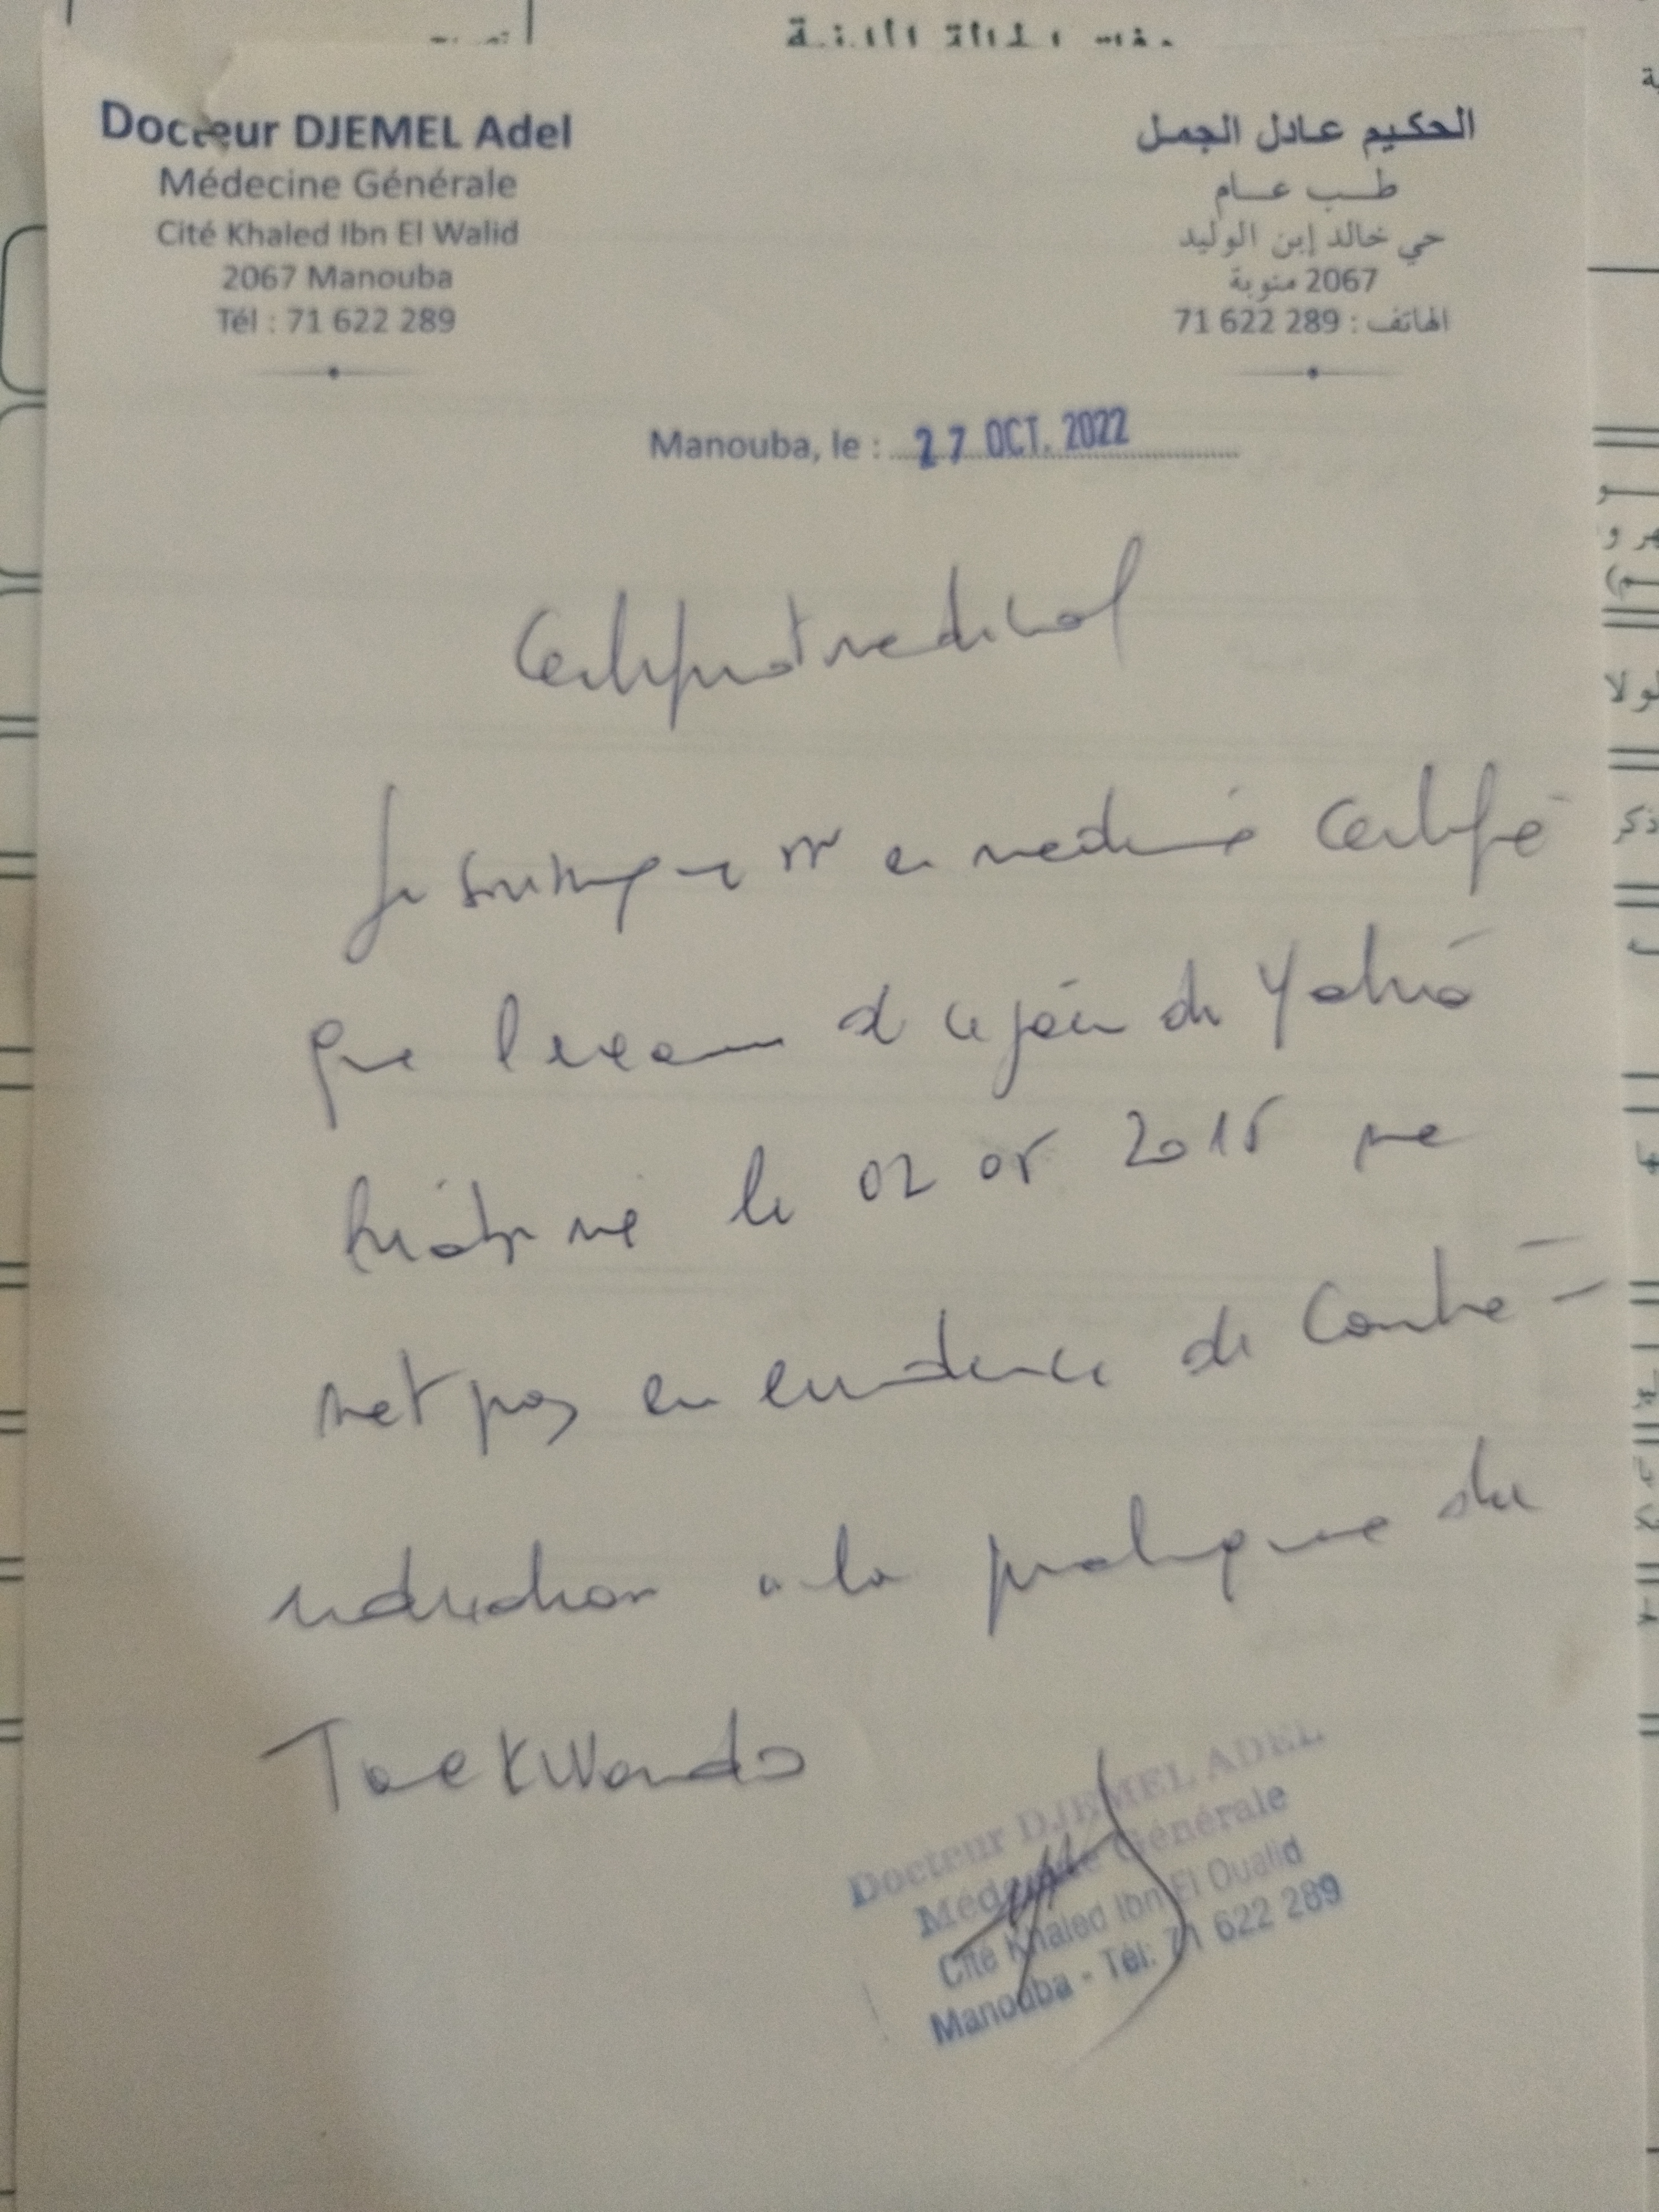 Docteur DJEMEL Adel
Médecine Générale
Cité Khaled Ibn El Walid
2067 Manouba
Tél : 71 622 289
الحكيم عادل الجمل
طب عام
حي خالد إبن الوليد
2067 منوبة
الهاتف : 71 622 289
Manouba, le : 27 OCT. 2022
Certificat medical
Je soussigne Dr en medecine Certifie
que l'examen de ce jour de Yahia
né le 02 05 2015 ne
met pas en evidence de Contre-
indication a la pratique du
TaeKWondo
Docteur DJEMEL ADEL
Médecine Générale
Cité Khaled Ibn El Oualid
Manouba - Tél: 71 622 289